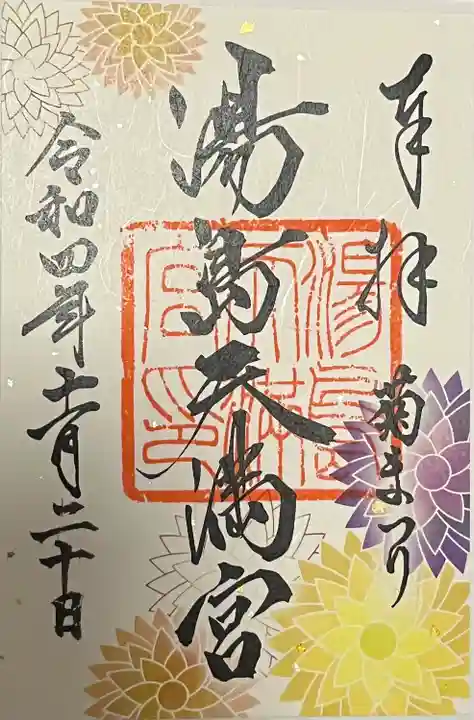 奉拝 菊まつり
湯島天満宮
令和四年十一月二十日